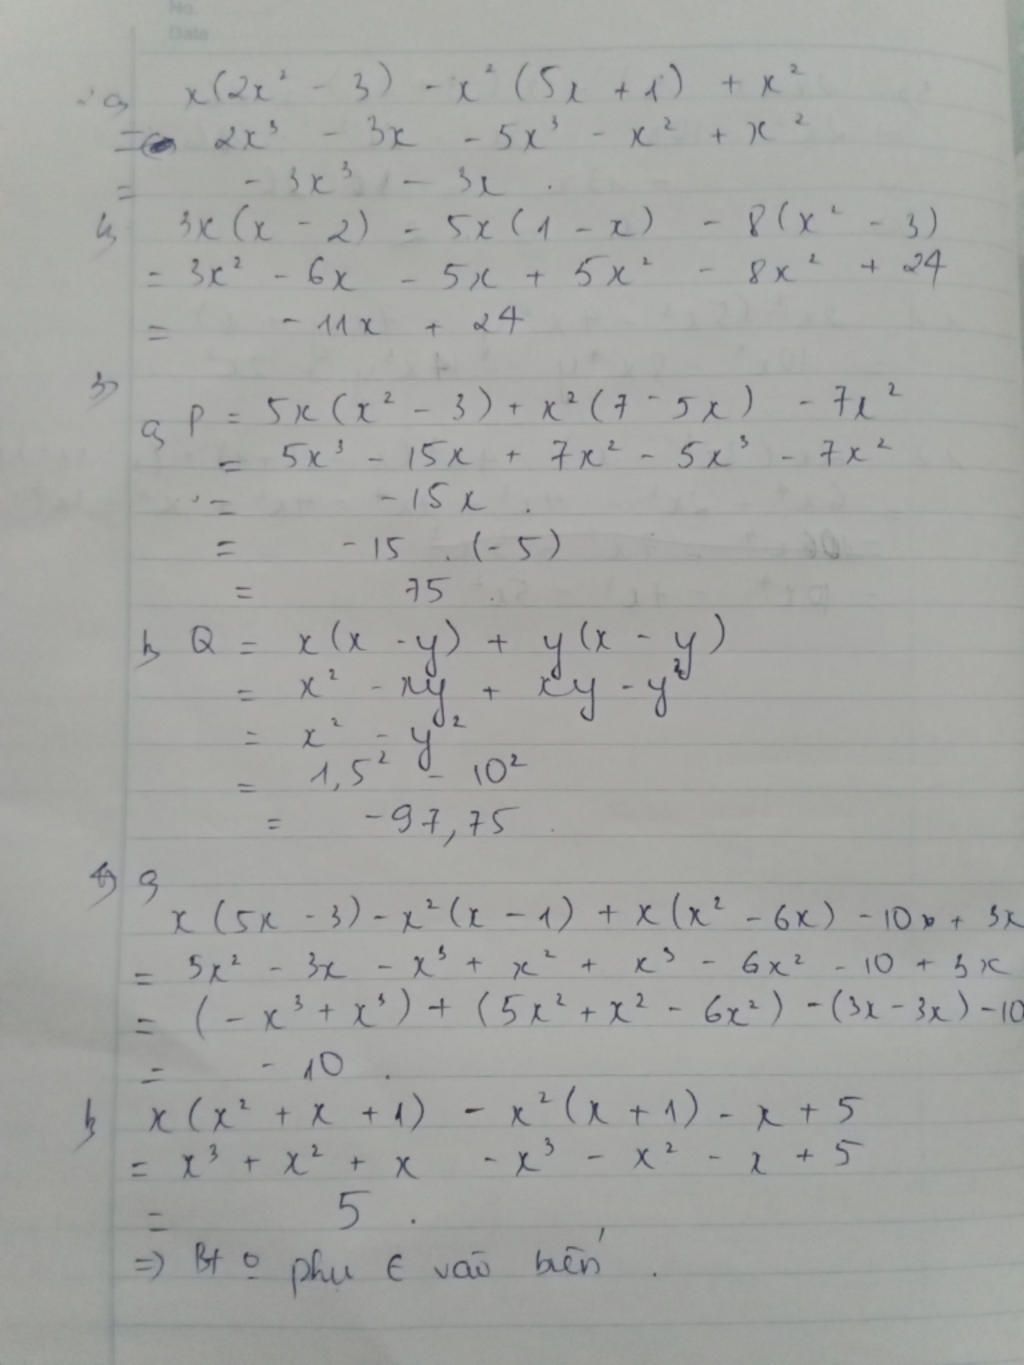 No.
Date
a, x(2x² - 3) - x² (5x + 1) + x²
= 2x³ - 3x - 5x³ - x² + x²
= - 3x³ - 3x .
b, 3x(x - 2) - 5x(1 - x) - 8(x² - 3)
= 3x² - 6x - 5x + 5x² - 8x² + 24
= - 11x + 24
3)
a, P = 5x(x² - 3) + x²(7 - 5x) - 7x²
= 5x³ - 15x + 7x² - 5x³ - 7x²
= - 15x .
= - 15 . (- 5)
= 75 .
b, Q = x(x - y) + y(x - y)
= x² - xy + xy - y²
= x² - y²
= 1,5² - 10²
= - 97,75 .
4) a,
x(5x - 3) - x²(x - 1) + x(x² - 6x) - 10 + 3x
= 5x² - 3x - x³ + x² + x³ - 6x² - 10 + 3x
= (- x³ + x³) + (5x² + x² - 6x²) - (3x - 3x) - 10
= - 10 .
b, x(x² + x + 1) - x²(x + 1) - x + 5
= x³ + x² + x - x³ - x² - x + 5
= 5 .
=> Bt o phụ ∈ vào biến .